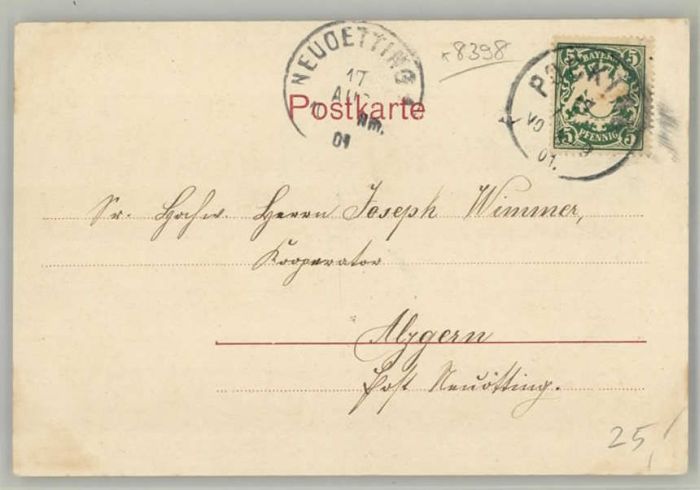 NEUOETTING
17
AUG
Nm.
01
Postkarte
8398
BAYERN
5 5
5 5
PFENNIG
POCK
VO
01.
Sr. Hochw. Herrn Joseph Wimmer,
Kooperator
Alzgern
Post Neuötting.
25,